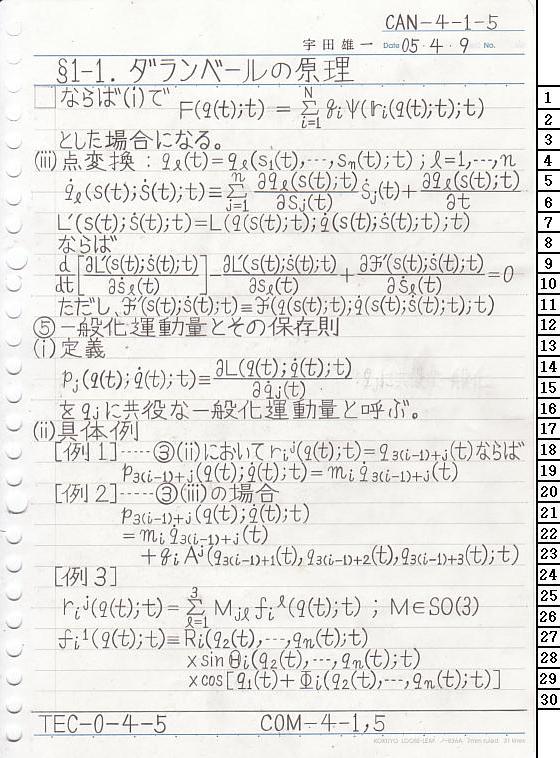 CAN-4-1-5
宇田雄一 Date 05・4・9 No.
§1-1. ダランベールの原理
□ならば(i)で F(q(t);t) = Σ_{i=1}^{N} g_i ψ(r_i(q(t);t);t)
とした場合になる。
(iii) 点変換 : q_ℓ(t)=q_ℓ(s_1(t),…,s_n(t);t) ; ℓ=1,…,n
q̇_ℓ(s(t);ṡ(t);t) ≡ Σ_{j=1}^{n} ∂q_ℓ(s(t);t)/∂s_j(t) ṡ_j(t) + ∂q_ℓ(s(t);t)/∂t
L′(s(t);ṡ(t);t)=L(q(s(t);t);q̇(s(t);ṡ(t);t);t)
ならば
d/dt[∂L′(s(t);ṡ(t);t)/∂ṡ_ℓ(t)] - ∂L′(s(t);ṡ(t);t)/∂s_ℓ(t) + ∂ℱ′(s(t);ṡ(t);t)/∂ṡ_ℓ(t) = 0
ただし、ℱ′(s(t);ṡ(t);t)≡ℱ(q(s(t);t);q̇(s(t);ṡ(t);t);t)
⑤一般化運動量とその保存則
(i) 定義
p_j(q(t);q̇(t);t) ≡ ∂L(q(t);q̇(t);t)/∂q̇_j(t)
を q_j に共役な一般化運動量と呼ぶ。
(ii) 具体例
[例1]-----③(ii)において r_i^j(q(t);t)=q_{3(i-1)+j}(t)ならば
p_{3(i-1)+j}(q(t);q̇(t);t)=m_i q̇_{3(i-1)+j}(t)
[例2]-----③(iii)の場合
p_{3(i-1)+j}(q(t);q̇(t);t)
=m_i q̇_{3(i-1)+j}(t)
+g_i A^j(q_{3(i-1)+1}(t),q_{3(i-1)+2}(t),q_{3(i-1)+3}(t);t)
[例3]
r_i^j(q(t);t) = Σ_{ℓ=1}^{3} M_{jℓ} f_i^ℓ(q(t);t) ; M∈SO(3)
f_i^1(q(t);t)≡R_i(q_2(t),…,q_n(t);t)
×sin Θ_i(q_2(t),…,q_n(t);t)
×cos[q_1(t)+Φ_i(q_2(t),…,q_n(t);t)]
TEC-0-4-5 COM-4-1,5
KOKUYO LOOSE-LEAF ノ-836A 7mm ruled 31 lines
1
2
3
4
5
6
7
8
9
10
11
12
13
14
15
16
17
18
19
20
21
22
23
24
25
26
27
28
29
30